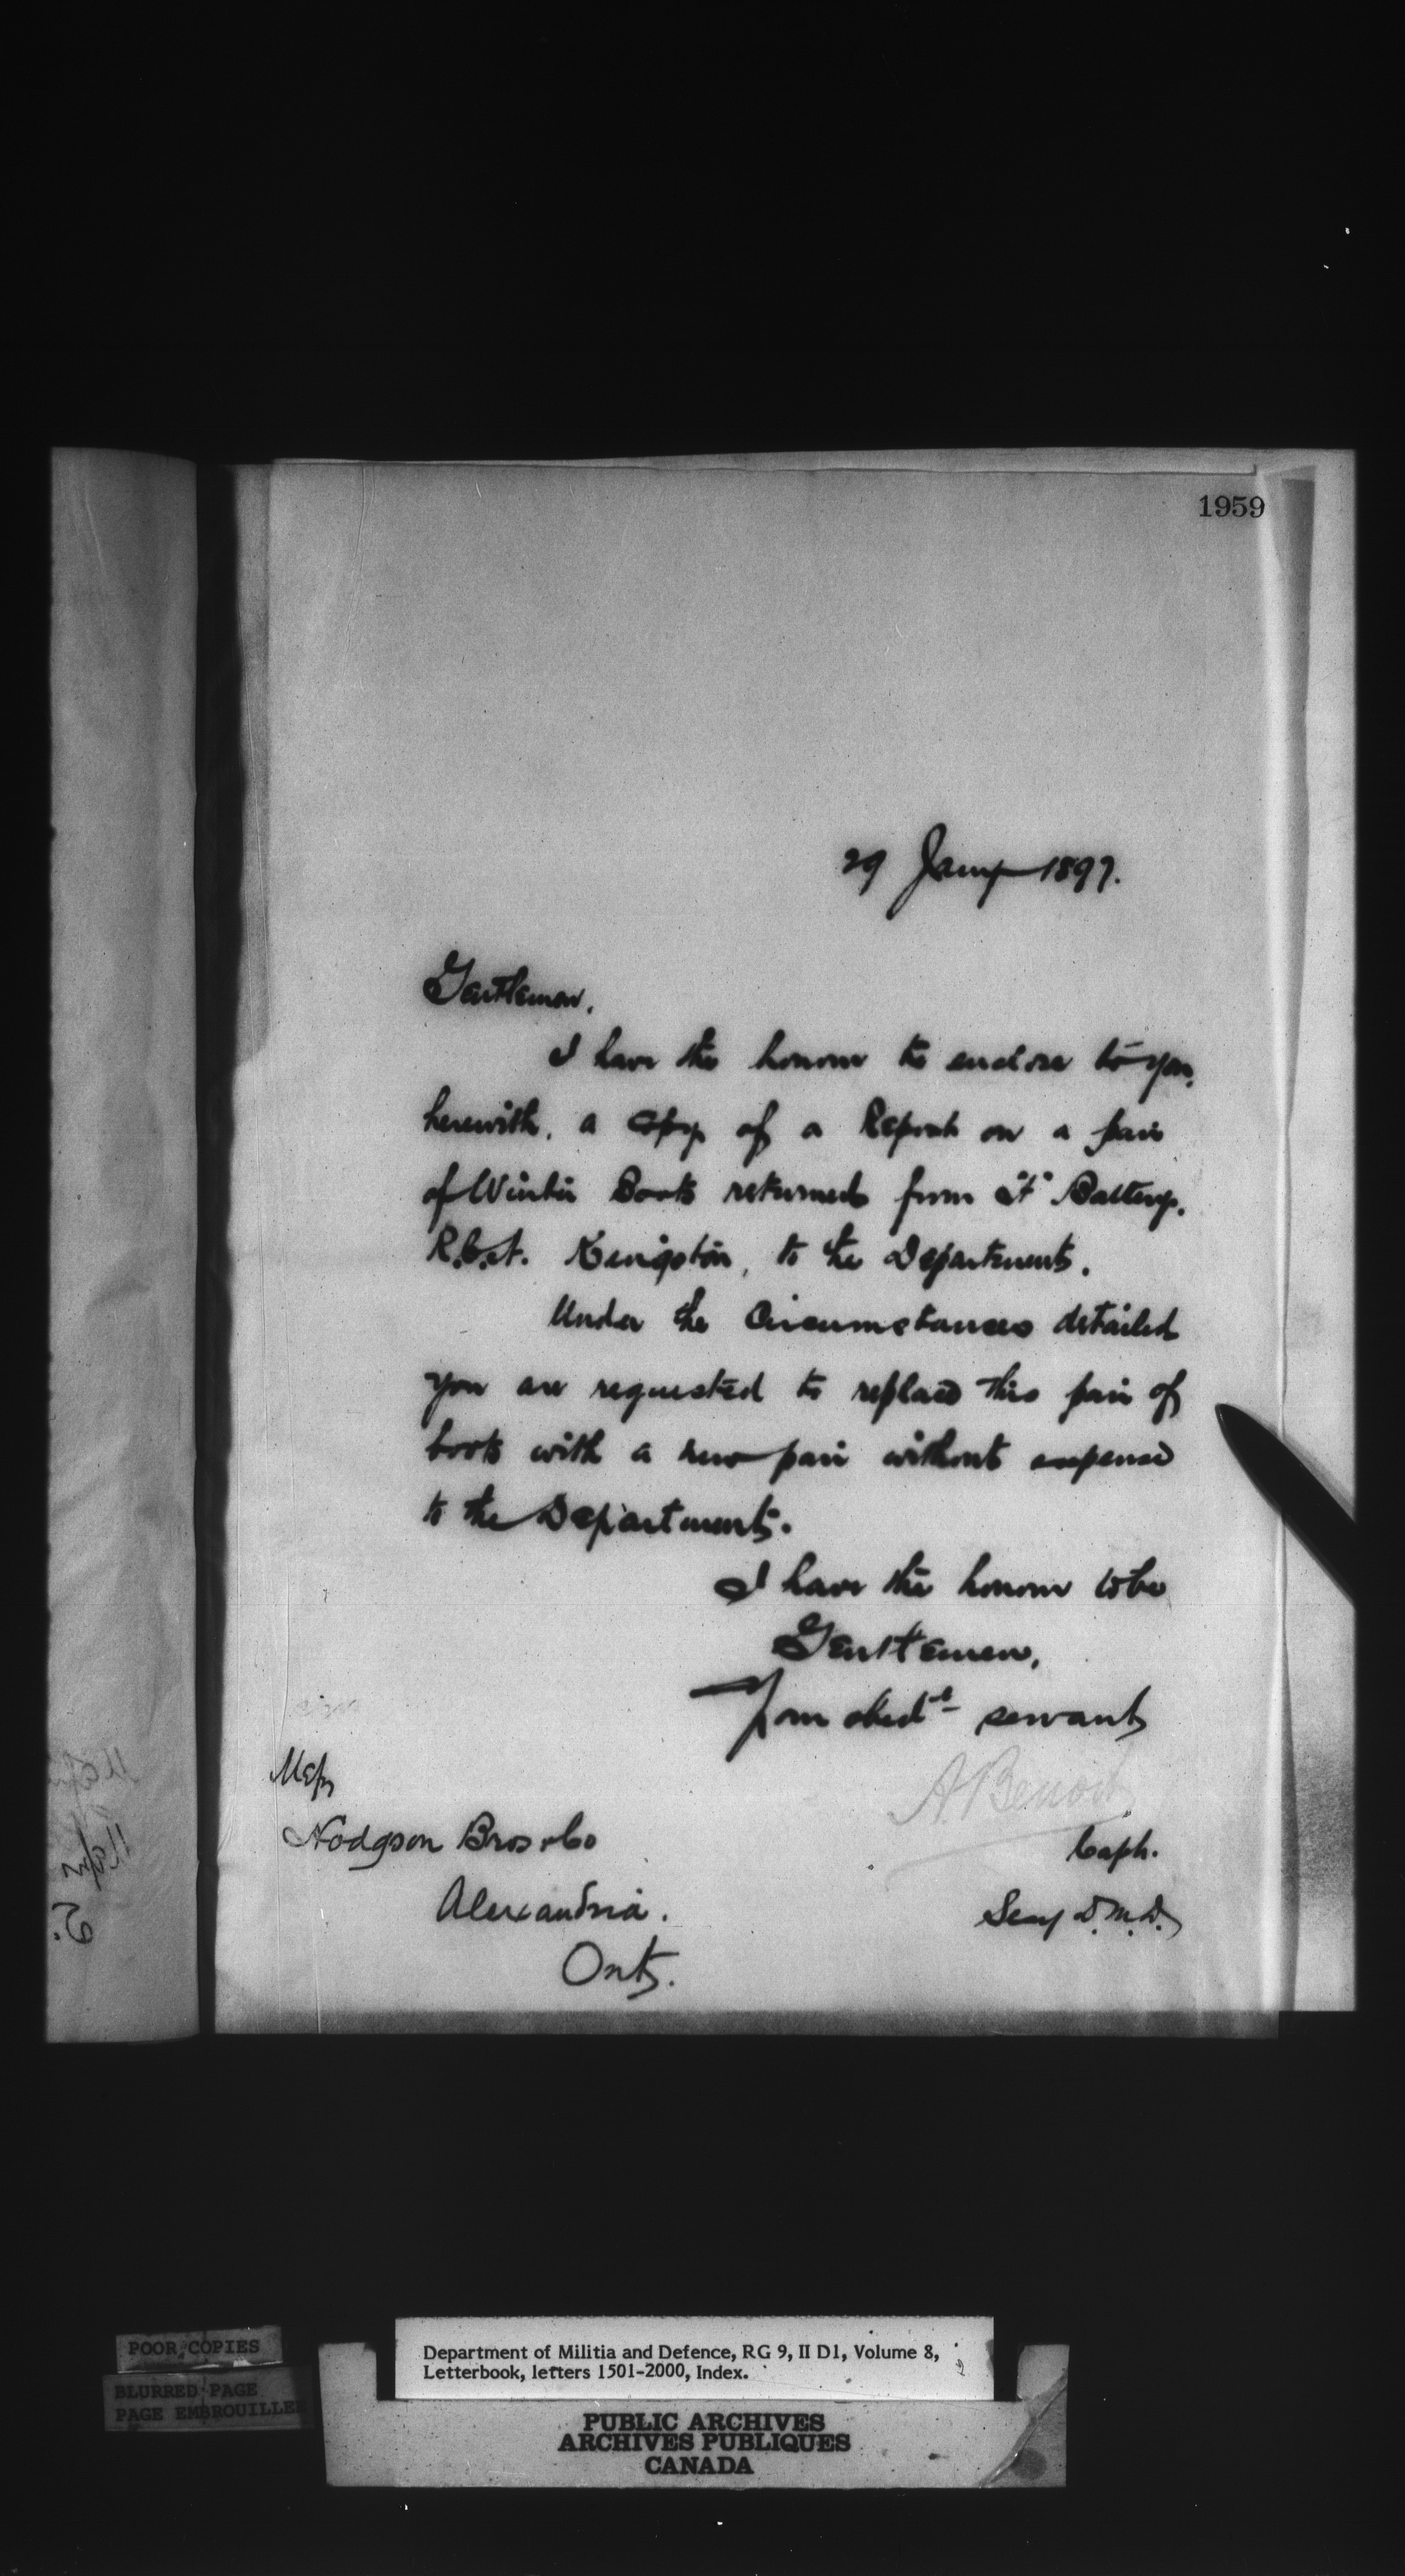 1959
29 Jany 1897.
Gentlemen,
I have the honour to enclose to you,
herewith, a copy of a Report on a pair
of Winter Boots returned from "A" Battery,
R.C.A. Kingston, to the Department.
Under the Circumstances detailed
you are requested to replace this pair of
boots with a new pair without expense
to the Department.
I have the honour to be
Gentlemen,
Your obedt servant
A. Benoit
Capt.
Secy D.M.D.
Messrs
Hodgson Bros & Co
Alexandria.
Ont.
POOR COPIES
BLURRED PAGE
PAGE EMBROUILLEE
Department of Militia and Defence, RG 9, II D1, Volume 8,
Letterbook, letters 1501-2000, Index.
PUBLIC ARCHIVES
ARCHIVES PUBLIQUES
CANADA